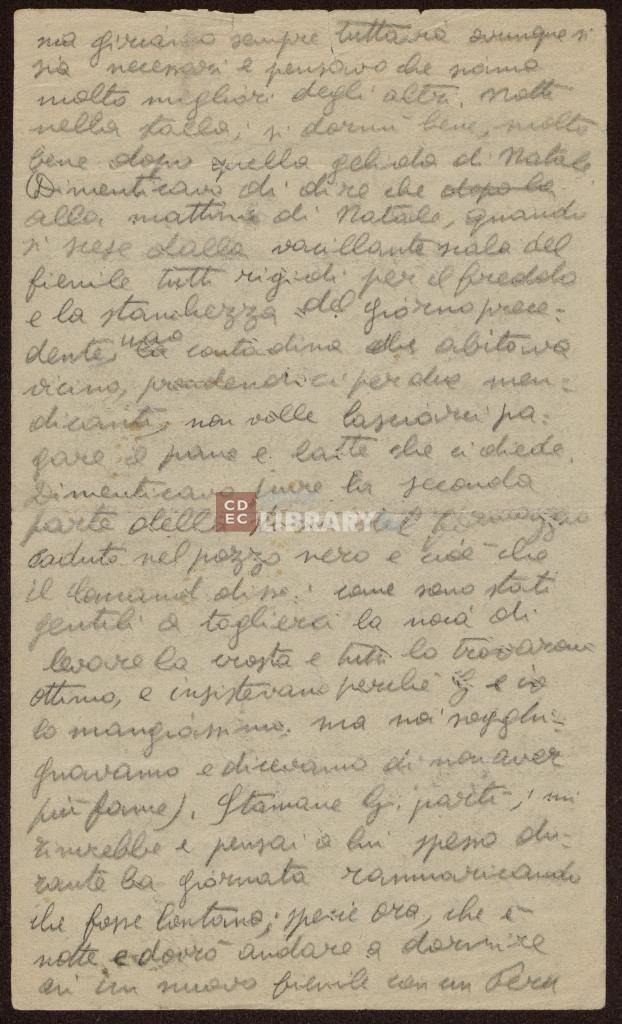 ma giriamo sempre tuttavia ovunque si
sia necessari e pensavo che siamo
molto migliori degli altri. Notte
nella stalla; si dormì bene, molto
bene dopo quella gelida di Natale
(Dimenticavo di dire che dopo la
alla mattina di Natale, quando
si scese dalla vacillante scala del
fienile tutti rigidi per il freddo
e la stanchezza del giorno prece-
dente, una contadina che abitava
vicino, prendendoci per due men-
dicanti, non volle lasciarci pa-
gare il pane e latte che ci diede.
Dimenticavo pure la seconda
parte della formaggio
caduto nel pozzo nero e cioè che
il Comand. disse: come sono stati
gentili a toglierci la noia di
levare la crosta e tutti lo trovarono
ottimo, e insistevano perchè G. e io
lo mangiassimo. ma noi sogghi-
gnavamo e dicevamo di non aver
più fame). Stamane G. partì; mi
rincrebbe e pensai a lui spesso du-
rante la giornata rammaricando
che fosse lontano; specie ora, che è
notte e dovrò andare a dormire
in un nuovo fienile con un
CDEC LIBRARY